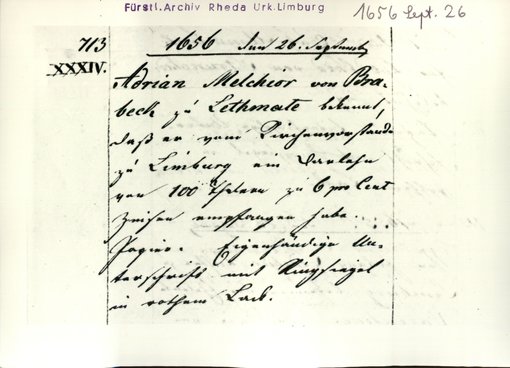 Fürstl. Archiv Rheda Urk. Limburg
1656 Sept. 26
713
XXXIV.
1656 den 26. September
Adrian Melchior von Bra-
beck zu Lethmate bekennt,
daß er vom Kirchenvorstande
zu Limburg ein Darlehn
von 100 Thalern zu 6 pro Cent
Zinsen empfangen habe.
Papier. Eigenhändige Un-
terschrift mit Ringsiegel
in rothem Lack.